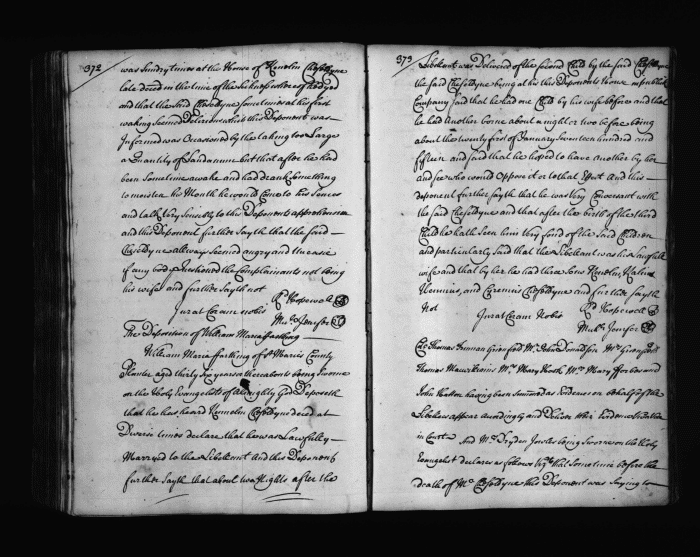 372
was Sundry times at the House of Kenelm Cheseldyne
late deced in the time of the Sickness whereof he dyed
and that the Said Cheseldyne Sometimes at his first
waking Seemed Delirious which this Deponent was
Informed was Occasioned by the taking too Large
a Quantity of Laudanum but that after he had
been Sometime awake and had drank Something
to moisten his Mouth he would Come to his Sences
and talk Very Sensibly to this Deponents apprehension
and this Deponent further Sayth that the said
Cheseldyne allways Seemed angry and Uneasie
if any body Questioned the Complainants not being
his wife and further Sayth not
Jurat Coram nobis
Rd Hopewell
Mich Jenifer
The Deposition of William Maria Farthing
William Maria Farthing of St Maries County
Planter aged thirty six years or thereabouts being Sworne
on the Holy Evangelists of Almighty God Deposeth
that he has heard Kenelm Cheseldyne deced at
Diverse times declare that he was Lawfully
Marryed to the Libellant And this Deponent
further Sayth that about two Nights after the
373
Libellant was Delivered of the Second Child by the Said Cheseldyne
the said Cheseldyne being at his this Deponents house in publick
Company Said that he had one Child by his wife before and that
he had another Come about a night or two before being
about the twenty first of January Seventeen hundred and
fifteen and said that he hoped to have another by her
and see who would Oppose it or to that Effect And this
deponent further Sayth that he was Very Conversant with
the said Cheseldyne and that after the birth of the third
Child he hath Seen him Very fond of the Said Children
and particularly Said that the Libellant was his Lawfull
wife and that by her he had three Sons Kenelm,
and Cyrenius Cheseldyne and further Sayth
Not
Jurat Coram Nobis
Rd Hopewell
Mich Jenifer
Col Thomas Truman Greenfield Mr John Donaldson Mrs Greenfield
Thomas Mrs Mary Mrs Mary and
John having been Summoned as Evidences on behalf of the
Libellant appear accordingly and Deliver their Evidence
in Court And Mr Dryden Jowles being Sworne on the Holy
Evangelist declares as follows Vizt that Some time before the
death of Mr Cheseldyne this Deponent was Saying to